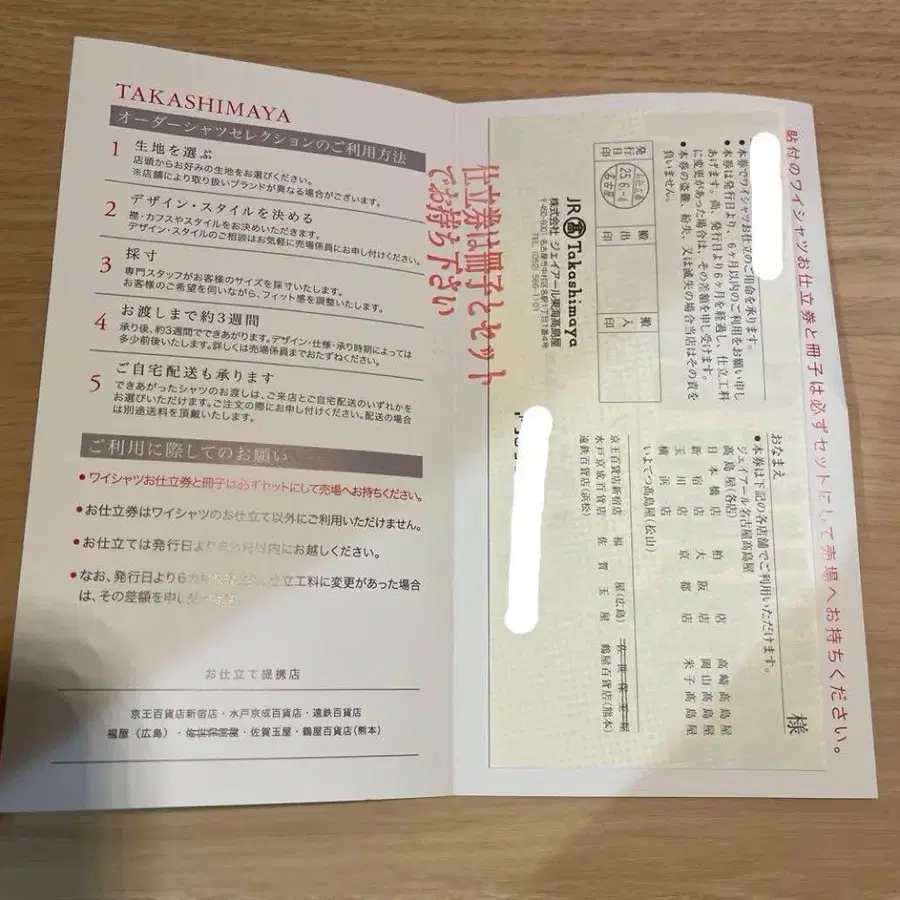 TAKASHIMAYA
オーダーシャツセレクションのご利用方法
1 生地を選ぶ
店頭からお好みの生地をお選びください。
※店舗により取り扱いブランドが異なる場合がございます。
2 デザイン・スタイルを決める
襟・カフスやスタイルをお決めいただきます。
デザイン・スタイルのご相談はお気軽に売場係員にお申し付けください。
3 採寸
専門スタッフがお客様のサイズを採寸いたします。
お客様のご希望を伺いながら、フィット感を調整いたします。
4 お渡しまで約3週間
承り後、約3週間でできあがります。デザイン・仕様・承り時期によっては
多少前後いたします。詳しくは売場係員までおたずねください。
5 ご自宅配送も承ります
できあがったシャツのお渡しは、ご来店とご自宅配送のいずれかを
お選びいただけます。ご注文の際にお申し付けください。配送の場合
は別途送料を頂戴いたします。
ご利用に際してのお願い
●ワイシャツお仕立券と冊子は必ずセットにして売場へお持ちください。
●お仕立券はワイシャツのお仕立て以外にご利用いただけません。
●お仕立ては発行日より6カ月以内にお越しください。
●なお、発行日より6カ月を 仕立工料に変更があった場合
は、その差額を申し
お仕立て提携店
京王百貨店新宿店・水戸京成百貨店・遠鉄百貨店
福屋(広島)・佐世保玉屋・佐賀玉屋・鶴屋百貨店(熊本)
仕立券は冊子とセット
でお持ち下さい
貼付のワイシャツお仕立券と冊子は必ずセットにして売場へお持ちください。
●本券でワイシャツお仕立のご用命を承ります。
●本券は発行日より、6ヶ月以内のご利用をお願い申し
あげます。尚、発行日より6ヶ月を経過し、仕立工料
に変更があった場合は、その差額を申し受けます。
●本券の盗難、紛失、又は滅失の場合当店はその責を
負いません。
発行日印
25.6.-4
名古屋
搬出印
搬入印
JR髙Takashimaya
株式会社 ジェイアール東海髙島屋
〒450-6001 名古屋市中村区名駅1丁目1番4号
TEL (052) 566-1101
おなまえ 様
●本券は下記の各店舗でご利用いただけます。
ジェイアール名古屋髙島屋
髙島屋(各店)
日本橋店 柏店 高崎髙島屋
新宿店 大阪店 岡山髙島屋
玉川店 京都店 米子髙島屋
横浜店
いよてつ髙島屋(松山)
京王百貨店新宿店 福屋(広島) 佐世保玉屋
水戸京成百貨店 佐賀玉屋 鶴屋百貨店(熊本)
遠鉄百貨店(浜松)